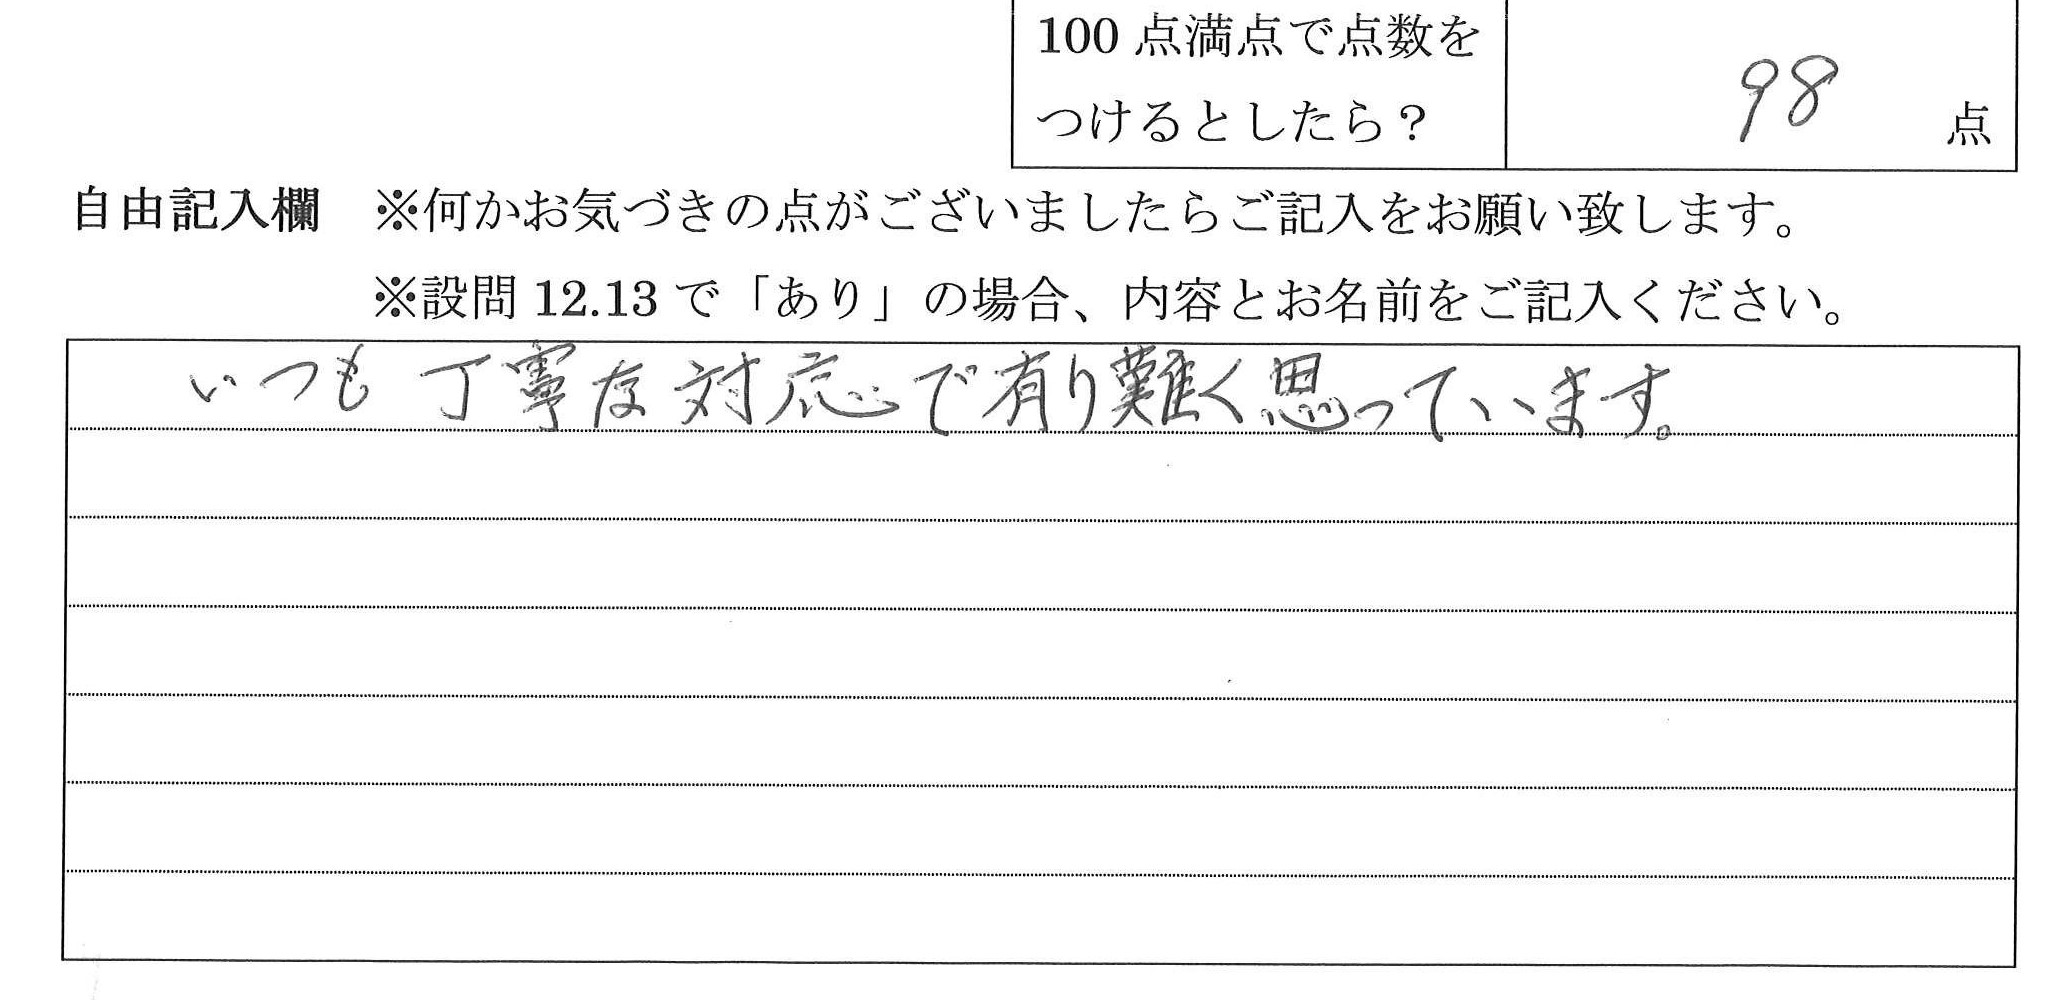 100点満点で点数を
つけるとしたら？
98 点
自由記入欄 ※何かお気づきの点がございましたらご記入をお願い致します。
※設問 12.13 で「あり」の場合、内容とお名前をご記入ください。
いつも丁寧な対応で有り難く思っています。